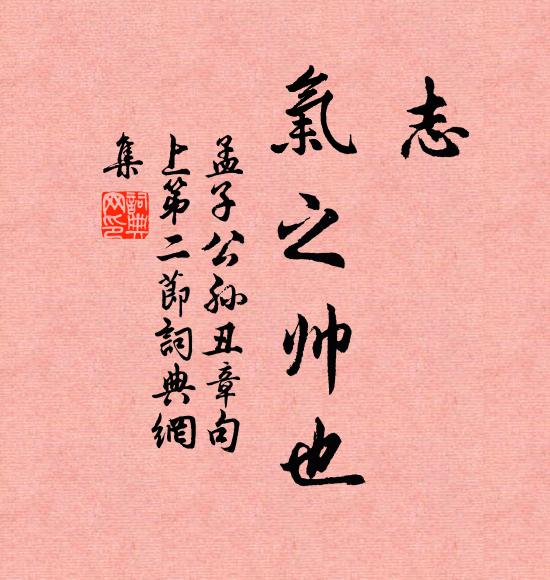 志
氣之帅也
孟子公孙丑章句
上第二節詞典網
集
詞典網印